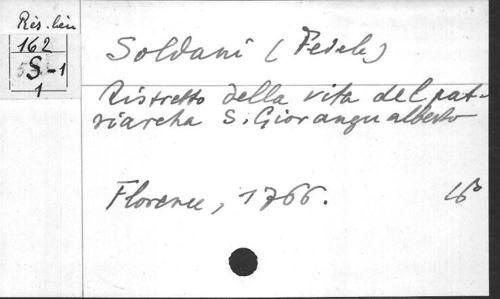 Rés. lin
162
S-1
1
Soldani (Fedele)
Ristretto della vita del pat-
riarcha S. Giovangualberto
Florence, 1766. 16°